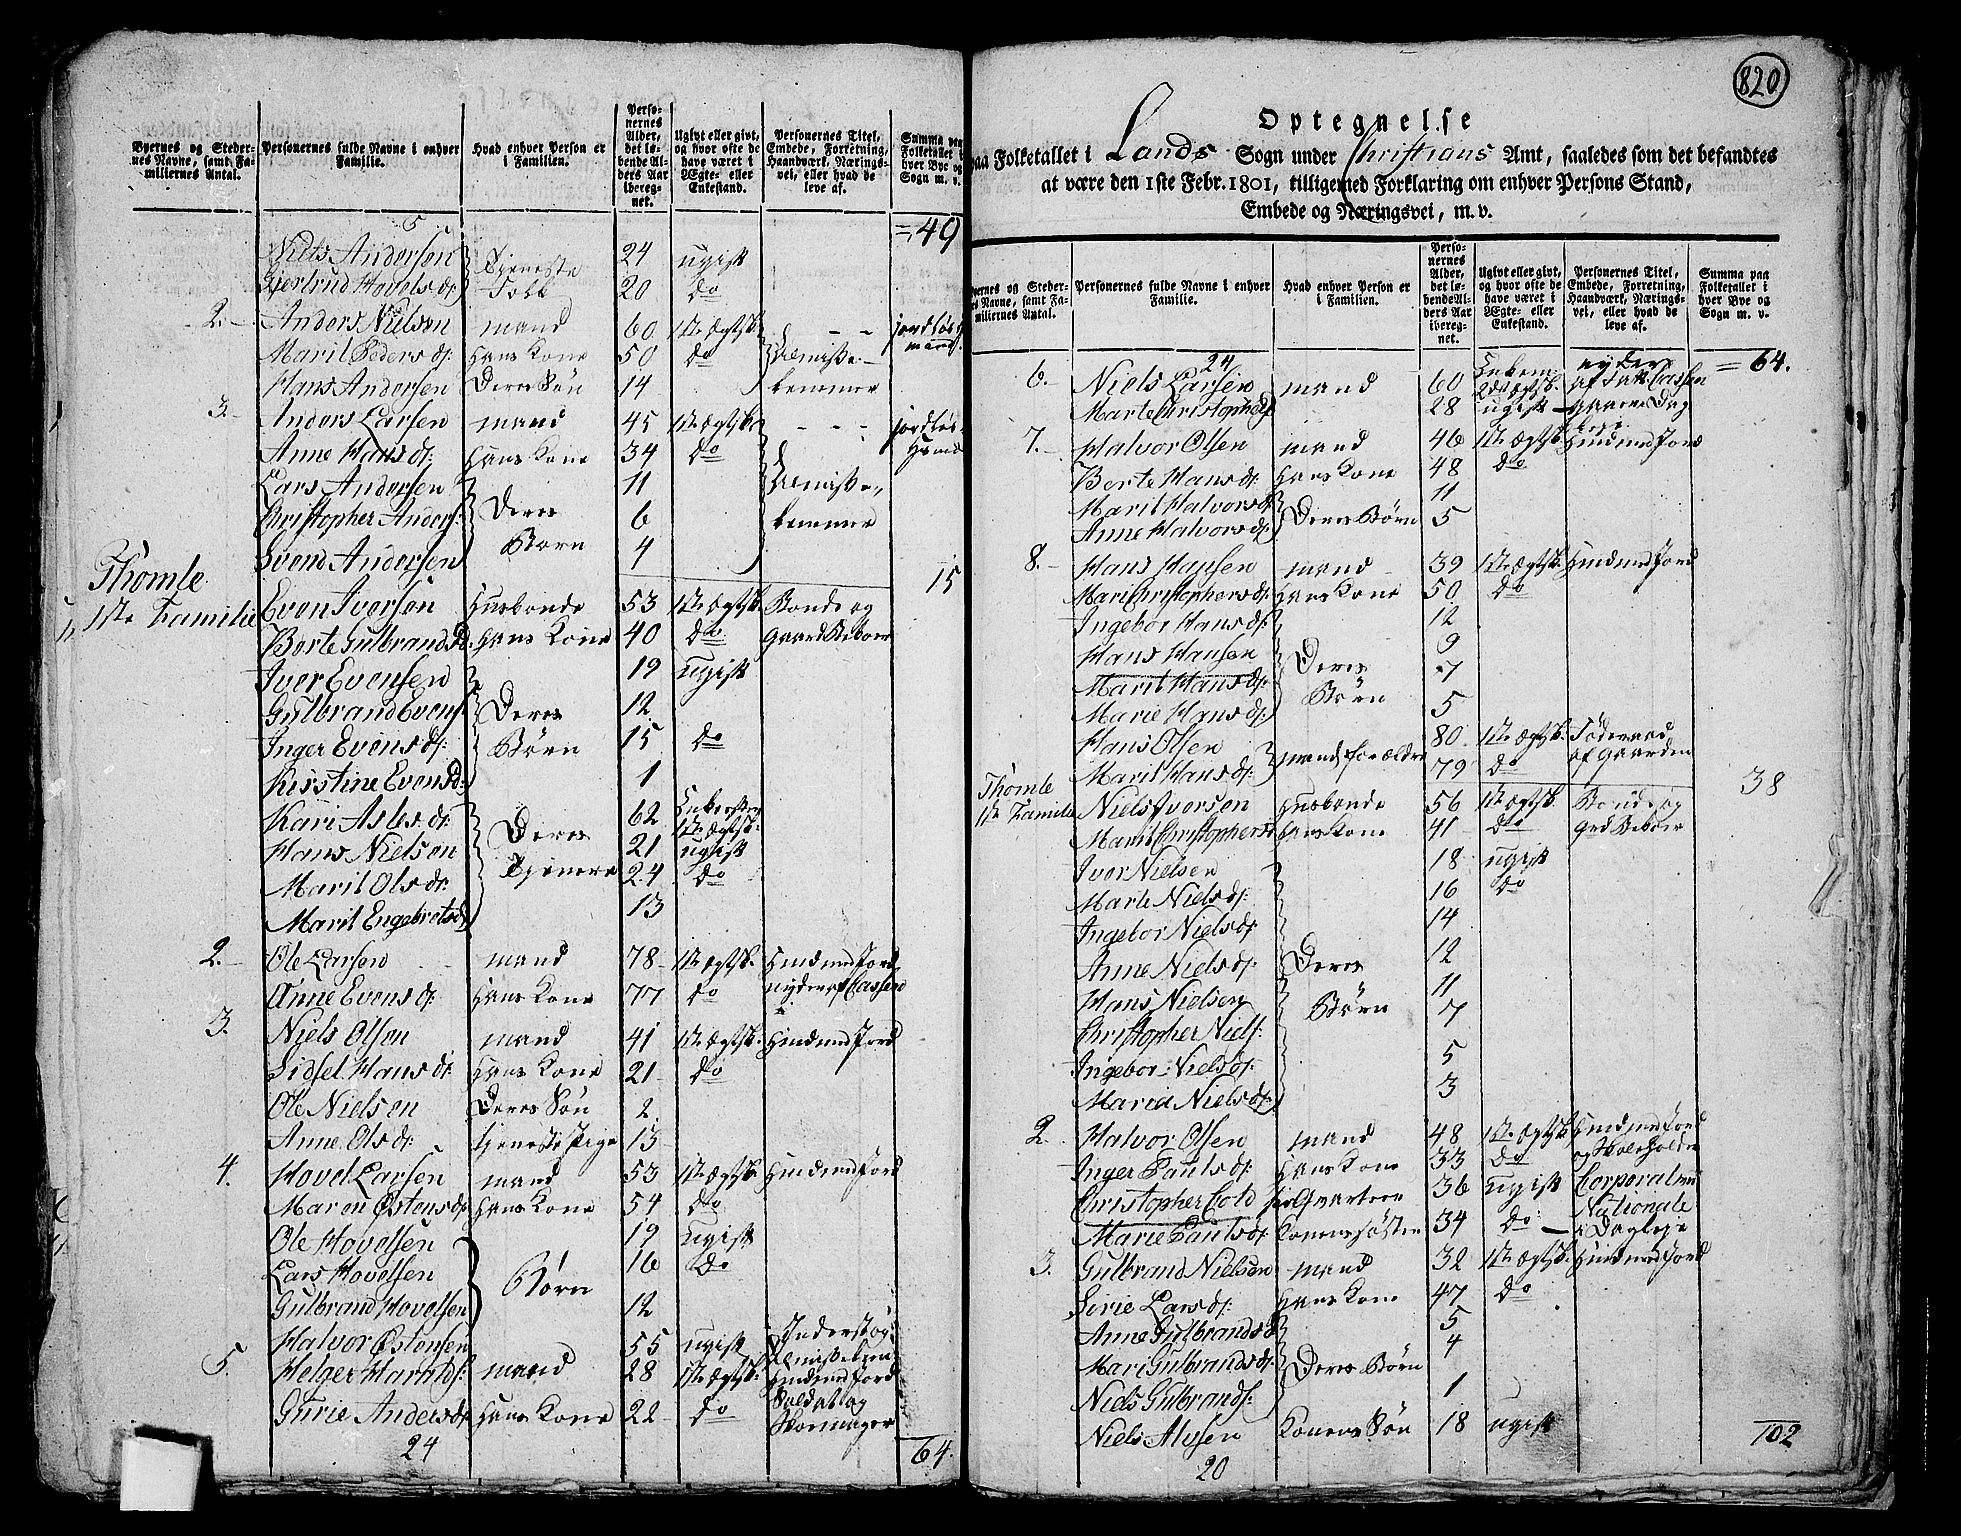 Byernes og Steder-
nes Navne, samt Fa-
miliernes Antal.
Personernes fulde Navne i enhver
Familie.
Hvad enhver Person er
i Familien.
Perso-
nernes
Alder,
det lø-
bende Al-
ders Aar
iberegnet.
Ugivt eller givt,
og hvor ofte de
have været i
Ægte- eller
Enkestand.
Personernes Titel,
Embede, Forretning,
Haandværk, Nærings-
vei, eller hvad de
leve af.
Summa paa
Folketallet i
hver Bye og
Sogn m. v.
5 = 49
Niels Andersen Tjeneste 24 ugift
Giertrud Hovels dr. Folk 20 do
2. Anders Nielsen mand 60 1ste Ægtsk. jordløs
Marit Peders dr. hans Kone 50 do Almisse- mand
Hans Andersen Deres Søn 14 lemmer
3. Anders Larsen mand 45 1ste Ægtsk. jordløs
Anne Hans dr. hans Kone 34 do
Lars Andersen 11 Almisse-
Christopher Anders: Deres 6 lemmer
Svend Andersen Børn 4
Thomle 15
1ste Familie Even Iversen Husbonde 53 1ste Ægtsk. Bonde og
Berte Gulbrands d. hans Kone 40 do Gaard Beboer
Iver Evensen 19 ugift
Gulbrand Evens: Deres 12
Inger Evens dr. Børn 15 do
Kirstine Evens d. 1
Kari Asles dr. 62 Enke efter 1ste Ægtsk.
Hans Nielsen Deres 21 ugift
Marit Ols dr. Tjenere 24 do
Marit Engebrets d. 13
2. Ole Larsen mand 78 1ste Ægtsk. Huusmd med Jord
Anne Evens dr. hans Kone 77 do
3. Niels Olsen mand 41 1ste Ægtsk. Huusmd med Jord
Sidsel Hans dr. hans Kone 21 do
Ole Nielsen Deres Søn 2
Anne Ols dr. Tjeneste Pige 15
4. Hovel Larsen mand 53 1ste Ægtsk. Huusmd med Jord
Maren Østens dr. hans Kone 54 do
Ole Hovelsen 19 ugift
Lars Hovelsen Børn 16 do
Gulbrand Hovelsen 12
Halvor Østensen 55 ugift Inderst og Almisselem
5. Helger Haralds: mand 28 1ste Ægtsk. Huusmd med Jord
Soldat og
Gurie Anders dr. hans Kone 22 do Skomager
24 64.
820
Optegnelse
paa Folketallet i Lands Sogn under Christians Amt, saaledes som det befandtes
at være den 1ste Febr. 1801, tilligemed Forklaring om enhver Persons Stand,
Embede og Næringsvei, m. v.
Byernes og Steder-
nes Navne, samt Fa-
miliernes Antal.
Personernes fulde Navne i enhver
Familie.
Hvad enhver Person er
i Familien.
Perso-
nernes
Alder,
det lø-
bende Al-
ders Aar
iberegnet.
Ugivt eller givt,
og hvor ofte de
have været i
Ægte- eller
Enkestand.
Personernes Titel,
Embede, Forretning,
Haandværk, Nærings-
vei, eller hvad de
leve af.
Summa paa
Folketallet i
hver Bye og
Sogn m. v.
24 = 64.
6. Niels Larsen mand 60 Enkem. 2det Ægtsk. nyder af Fatt. Cassen
Marte Christophers d. 28 ugift
7. Halvor Olsen mand 46 1ste Ægtsk. Huusmd med Jord
Berte Hans dr. hans Kone 48 do
Marit Halvors dr. 11
Anne Halvors dr. Deres Børn 5
8. Hans Hansen mand 39 1ste Ægtsk. Huusmd med Jord
Mari Christophers dr. hans Kone 50 do
Ingebor Hans dr. 12
Hans Hansen 9
Marit Hans dr. Deres 7
Marie Hans dr. Børn 5
Hans Olsen 80 1ste Ægtsk. Føderaad
Marit Hans dr. mands forældre 79 do af Gaarden
Thomle 38
1ste Familie Niels Iversen Husbonde 56 1ste Ægtsk. Bonde og
Marit Christophers d. hans Kone 41 do Grd Beboer
Iver Nielsen 18 ugift
Marte Niels dr. 16 do
Ingebor Niels dr. 14
Anne Niels dr. Deres 12
Hans Nielsen Børn 11
Christopher Niels: 7
Ingebor Niels dr. 5
Maria Niels dr. 3
2. Halvor Olsen mand 48 1ste Ægtsk. Huusmd med Jord
Inger Pauls dr. hans Kone 33 do og Skoleholder
Christopher Cold 36 ugift Corporal ved
Nationale
Marie Pauls dr. Konens søster 34 do i Dagleje
3. Gulbrand Nielsen mand 32 1ste Ægtsk. Huusmd med Jord
Sirie Lars dr. hans Kone 47 do
Anne Gulbrands d. 5
Mari Gulbrands dr. Deres Børn 4
Niels Gulbrands: 1
Niels Alvsen Konens Søn 18 ugift
20 102